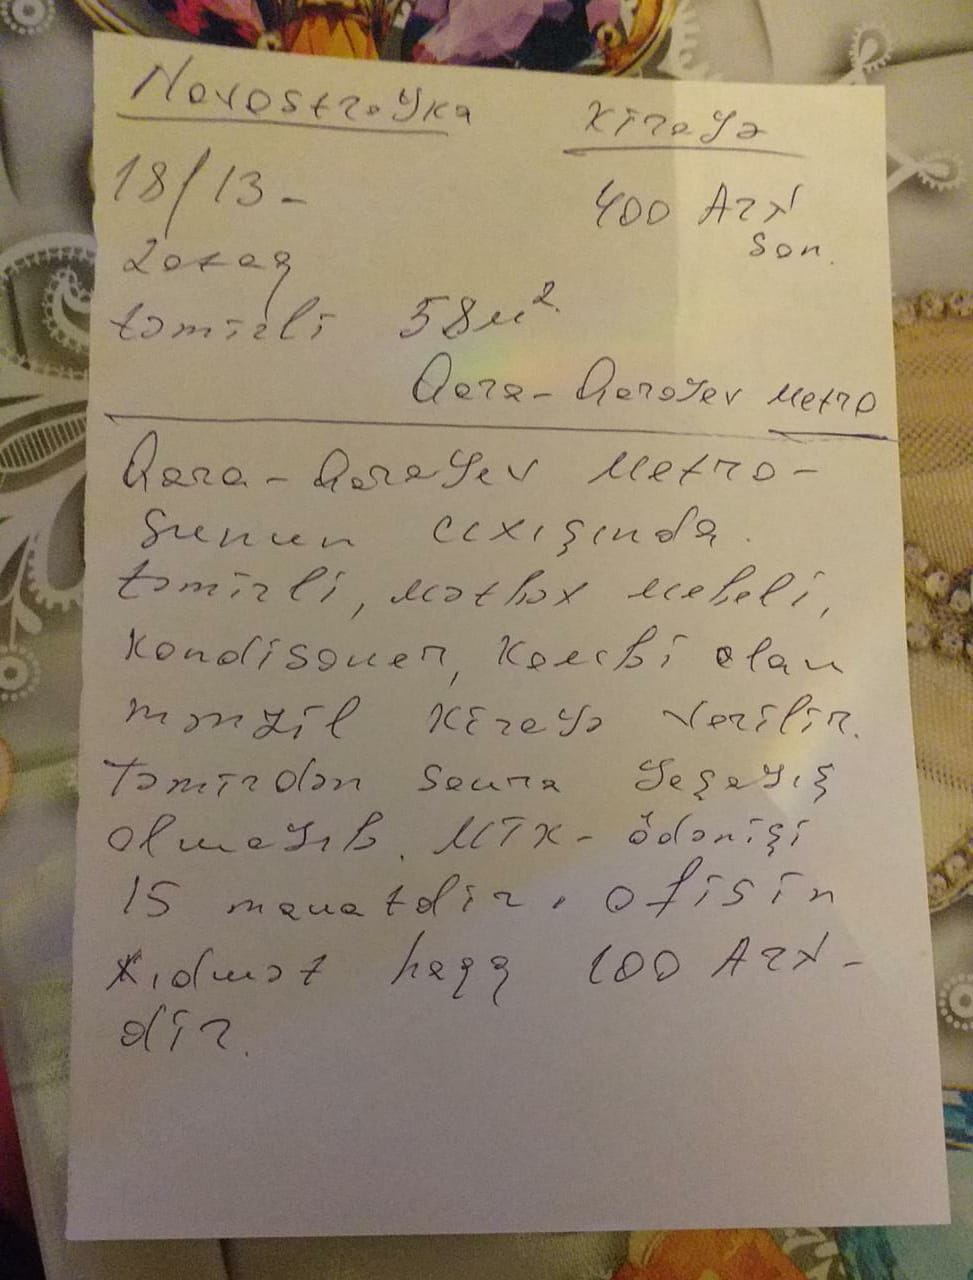 Novostroyka Kirayə
18/13- 400 Azn
2 otaq son.
təmirli 58м².
Qara-Qarayev Metro
Qara-Qarayev Metro-
sunun çıxışında.
təmirli, mətbəx mebeli,
Kondisoner, Kombi olan
mənzil Kirayə verilir.
Təmirdən sonra yaşayış
olmayıb. MTK- ödənişi
15 manatdir. ofisin
xidmət haqq 100 Azn-
dir.